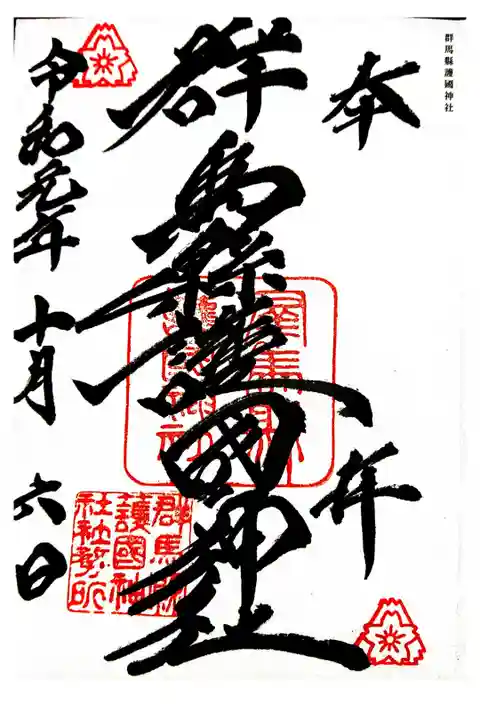 群馬縣護國神社
奉拝
群馬縣護國神社
令和元年 十月 六日
群馬縣
護國神
社社務所